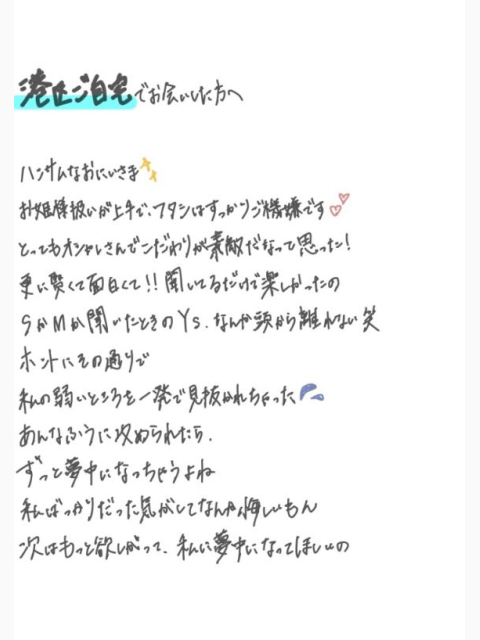 港区ご自宅でお会いした方へ
ハンサムなおにいさま
お姫様扱いが上手で、ワタシはすっかりご機嫌です
とってもオシャレさんでこだわりが素敵だなって思った!
更に賢くて面白くて!!聞いてるだけで楽しかったの
SかMか聞いたときのYs.なんか頭から離れない笑
ホントにその通りで
私の弱いところを一発で見抜かれちゃった
あんなふうに攻められたら、
ずっと夢中になっちゃうよね
私ばっかりだった気がしてなんか悔しいもん
次はもっと欲しがって、私に夢中になってほしいの